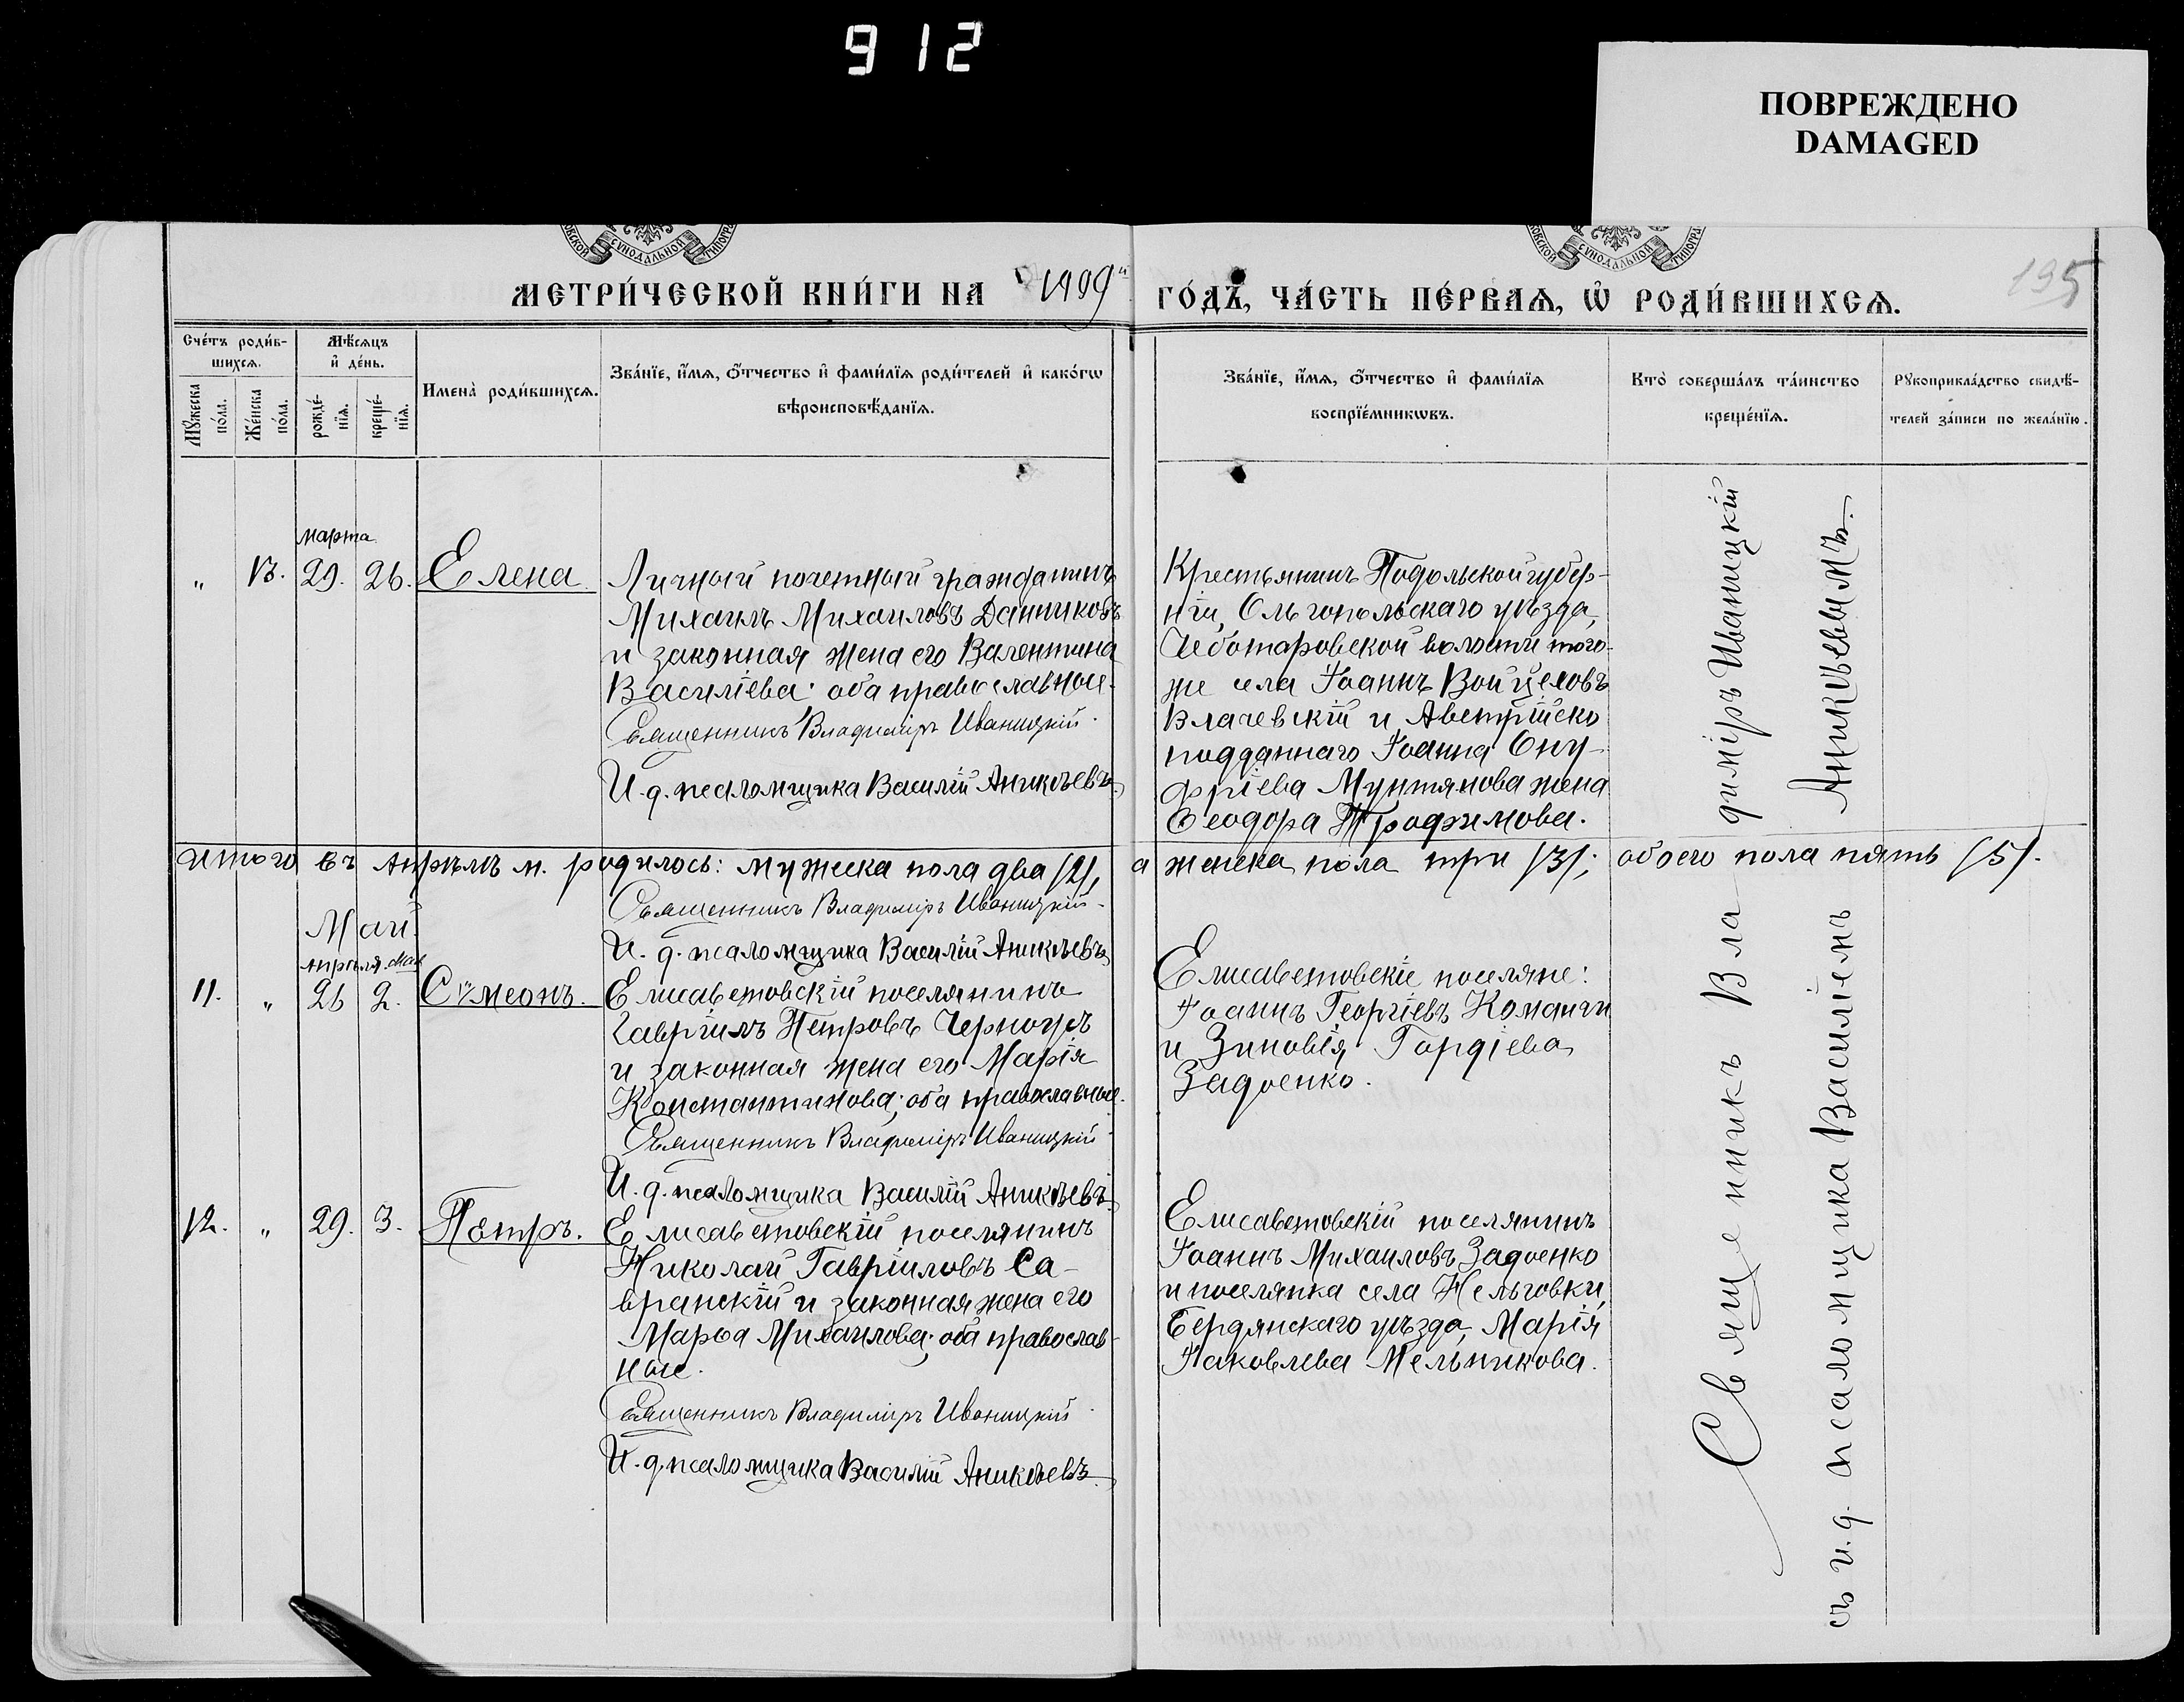 912
ПОВРЕЖДЕНО
DAMAGED
МЕТРИ́ЧЕСКОЙ КНИ́ГИ НА 1909й ГО́ДЪ, ЧА́СТЬ ПЕ́РВАѦ, Ѿ РОДИ́ВШИХСѦ.
195
Сче́тъ роди́в-
шихсѧ.
Мѣ́сѧцъ
и҆ де́нь.
Мꙋ́жеска по́ла.
Же́нска по́ла.
рожде́-нїѧ.
креще́-нїѧ.
Имена̀ роди́вшихсѧ.
Зва́нїе, и҆́мѧ, ѻ҆́тчество и҆ фами́лїѧ роди́телей и҆ како́гѡ
вѣроисповѣ́данїѧ.
Зва́нїе, и҆́мѧ, ѻ҆́тчество и҆ фами́лїѧ
воспрїе́мникѡвъ.
Кто̀ соверша́лъ та́инство
креще́нїѧ.
Рꙋкоприкла́дство свидѣ́-
телей за́писи по жела́нїю.
марта
" 13. 29. 26. Елена
Личный почетный гражданинъ
Михаилъ Михаиловъ Данниковъ
и законная жена его Валентина
Василіева; оба православные.
Священникъ Владиміръ Иваницкій
И. д. псаломщика Василій Аникѣевъ
Крестьянинъ Подольской губер-
ніи, Ольгопольскаго уѣзда,
Чеботаровской волости того-
же села Іоаннъ Войцеховъ
Влачевскій и Австрійско
подданнаго Іоанна Ону-
фріева Мунтянова жена
Ѳеодора Трофимова.
Итого въ Апрѣлѣ м. родилось: мужеска пола два /2/, а женска пола три /3/; обоего пола пять /5/.
Священникъ Владиміръ Иваницкій
И. д. псаломщика Василій Аникѣевъ
Май
апрѣля. мая
11. " 26 2. Сѵмеонъ.
Елисаветовскій поселянинъ
Гавріилъ Петровъ Черногоръ
и законная жена его Марія
Константинова; оба православные.
Священникъ Владиміръ Иваницкій
И. д. псаломщика Василій Аникѣевъ
Елисаветовскіе поселяне:
Іоаннъ Георгіевъ
и Зиновія Гордіева
Задоенко.
12. " 29. 3. Петръ.
Елисаветовскій поселянинъ
Николай Гавріиловъ Са-
вранскій и законная жена его
Марѳа Михаилова; оба православ-
ные.
Священникъ Владиміръ Иваницкій
И. д. псаломщика Василій Аникѣевъ
Елисаветовскій поселянинъ
Іоаннъ Михаиловъ Задоенко
и поселянка села Нельговки,
Бердянскаго уѣзда, Марія
Іаковлева Мельникова.
Священникъ Владиміръ Иваницкій
съ и. д. псаломщика Василіемъ Аникѣевымъ.